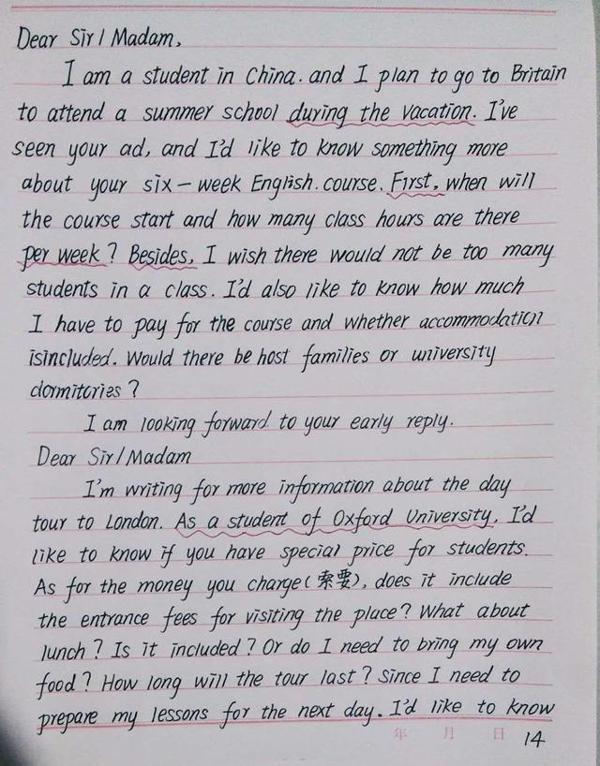 Dear Sir/Madam,
I am a student in China. and I plan to go to Britain
to attend a summer school during the vacation. I've
seen your ad, and I'd like to know something more
about your six-week English. course. First, when will
the course start and how many class hours are there
per week? Besides, I wish there would not be too many
students in a class. I'd also like to know how much
I have to pay for the course and whether accommodation
isincluded. Would there be host families or university
dormitories?
I am looking forward to your early reply.
Dear Sir/Madam
I'm writing for more information about the day
tour to London. As a student of Oxford University, I'd
like to know if you have special price for students.
As for the money you charge(索要), does it include
the entrance fees for visiting the place? What about
lunch? Is it included? Or do I need to bring my own
food? How long will the tour last? Since I need to
prepare my lessons for the next day. I'd like to know
年 月 日 14